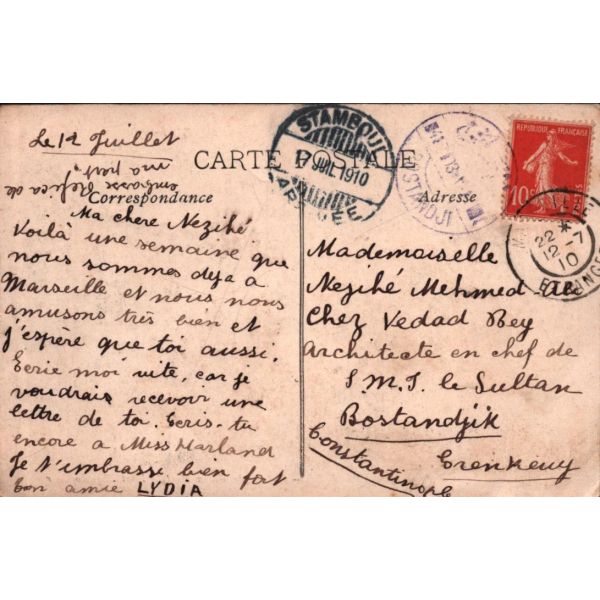 Le 12 Juillet
CARTE POSTALE
embrasse Refica de
ma part
Correspondance
Adresse
STAMBOUL
17 JUIL 1910
ARRIVÉE
BOSTANDJI
REPUBLIQUE FRANÇAISE
10c
POSTES
22
12 - 7
10
ETRANGER
Ma chere Nezihé
Voilà une semaine que
nous sommes deja a
Marseille et nous nous
amusons très bien et
j'espère que toi aussi.
Ecrie moi vite, car je
voudrais recevoir une
lettre de toi. Ecris-tu
encore a Miss Harland
Je t'embrasse bien fort
ton amie LYDIA
Mademoiselle
Nezihé Mehmed Ali
Chez Vedad Bey
Architecte en chef de
S.M.I. le Sultan
Bostandjik
Erenkeuy
Constantinople